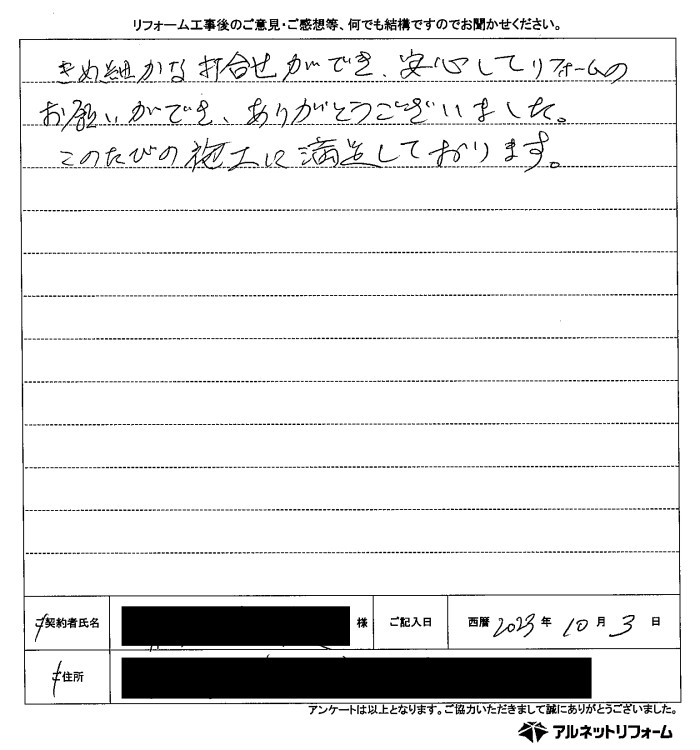 リフォーム工事後のご意見・ご感想等、何でも結構ですのでお聞かせください。
きめ細かな打合せができ、安心してリフォームの
お願いができ、ありがとうございました。
このたびの施工に満足しております。
ご契約者氏名 様 ご記入日 西暦 2023 年 10 月 3 日
ご住所
アンケートは以上となります。ご協力いただきまして誠にありがとうございました。
アルネットリフォーム